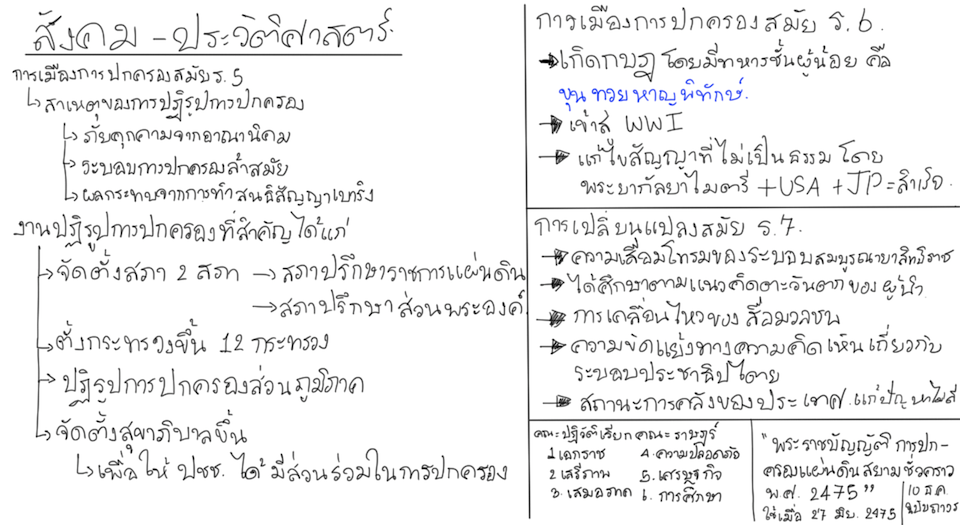 สังคม - ประวัติศาสตร์
การเมืองการปกครองสมัย ร.5
สาเหตุของการปฏิรูปการปกครอง
ภัยคุกคามจากอาณานิคม
ระบอบการปกครองล้ำสมัย
ผลกระทบจากการทำสนธิสัญญาเบาริง
งานปฏิรูปการปกครองที่สำคัญได้แก่
จัดตั้งสภา 2 สภา → สภาปรึกษาราชการแผ่นดิน
→ สภาปรึกษาส่วนพระองค์
ตั้งกระทรวงขึ้น 12 กระทรวง
ปฏิรูปการปกครองส่วนภูมิภาค
จัดตั้งสุขาภิบาลขึ้น
เพื่อให้ ปชช. ได้มีส่วนร่วมในการปกครอง
การเมืองการปกครองสมัย ร.6.
เกิดกบฏ โดยมีทหารชั้นผู้น้อย คือ
ขุนทวยหาญพิทักษ์.
เข้าสู่ WWI
แก้ไขสัญญาที่ไม่เป็นธรรม โดย
พระยากัลยาไมตรี +USA +JP = สำเร็จ.
การเปลี่ยนแปลงสมัย ร.7.
ความเสื่อมโทรมของระบอบสมบูรณาญาสิทธิราช
ได้ศึกษาตามแนวคิดตะวันตกของผู้นำ
การเคลื่อนไหวของสื่อมวลชน
ความขัดแย้งทางความคิดเห็นเกี่ยวกับ
ระบอบประชาธิปไตย
สถานะการคลังของประเทศ.แก้ปัญหาไม่ดี
คณะปฏิวัติเรียกคณะราษฎร์
1 เอกราช 4. ความปลอดภัย
2 เสรีภาพ 5. เศรษฐกิจ
3. เสมอภาค 6. การศึกษา
"พระราชบัญญัติการปก-
ครองแผ่นดินสยามชั่วคราว
พ.ศ. 2475"
ใช้เมื่อ 27 มิย. 2475
10 ธ.ค.
ฉบับถาวร